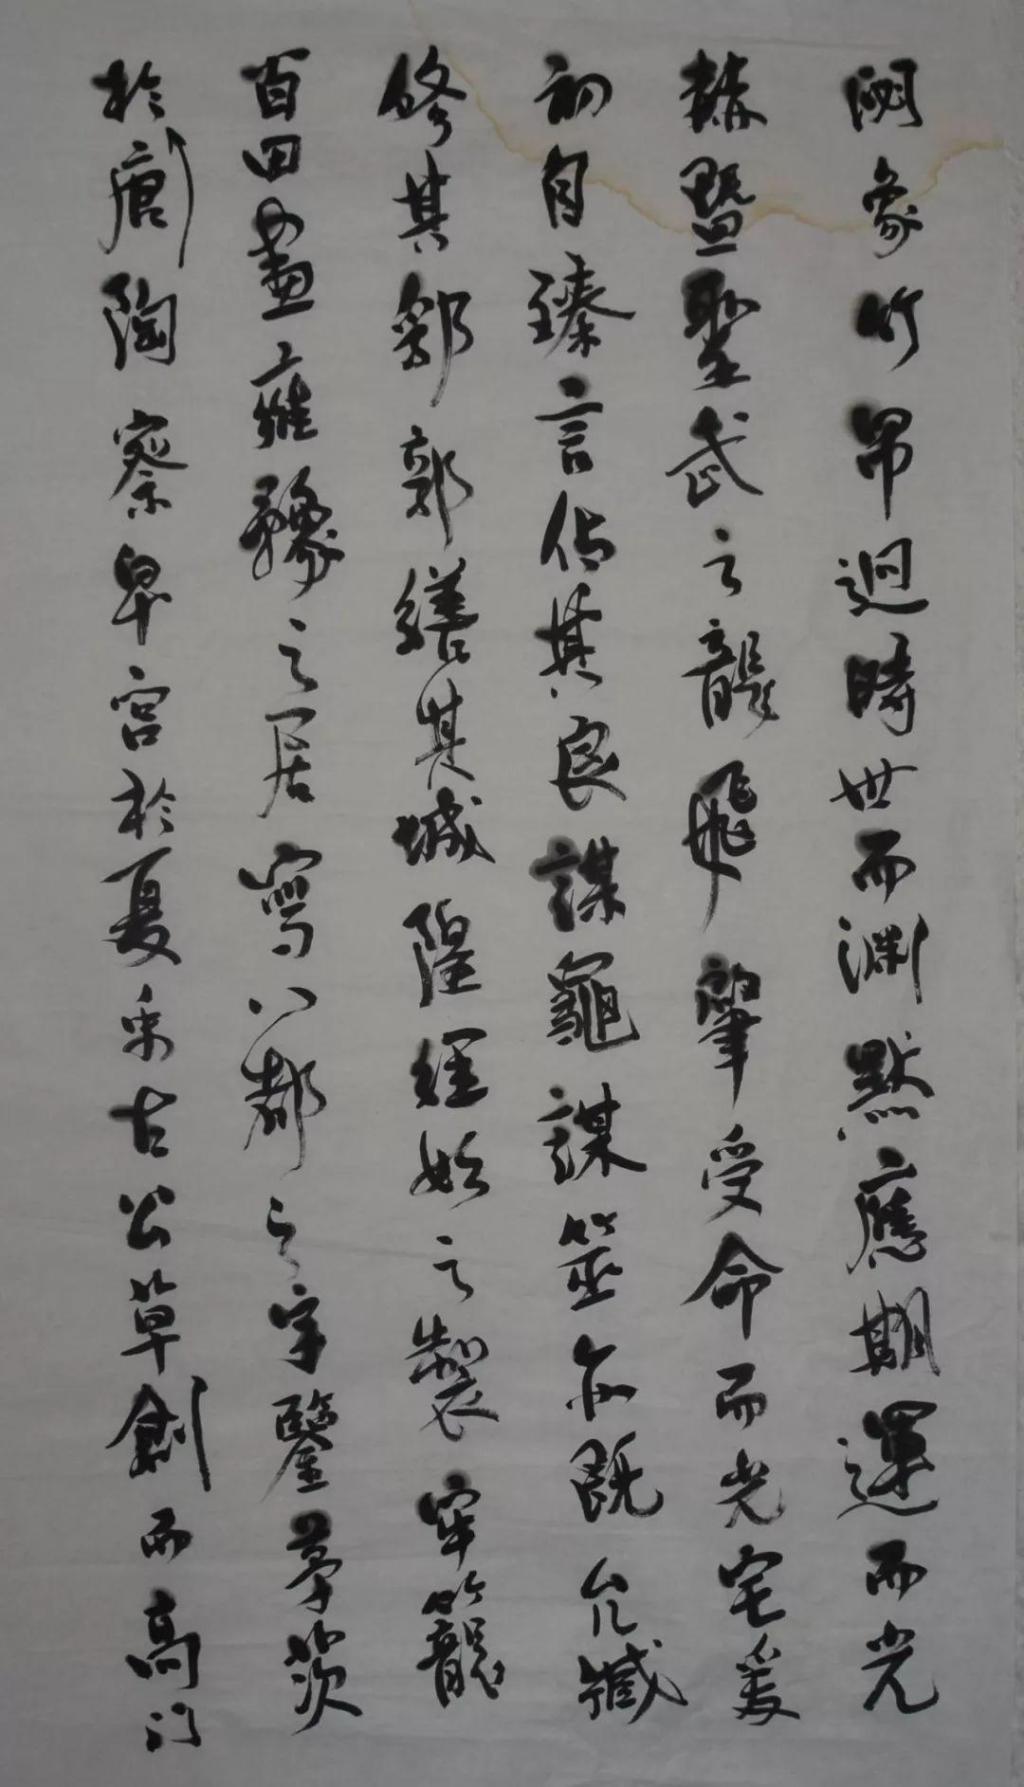 閟象竹帛迥時世而淵默應期運而光
赫暨聖武之龍飛肇受命而光宅爰
初自臻言佔其良謀龜謀筮亦既允臧
修其郛郭繕其城隍經始之製牢籠
百田畫雍豫之居寫八都之宇鑒茅茨
於唐陶察卑宮於夏禹古公草創而高门